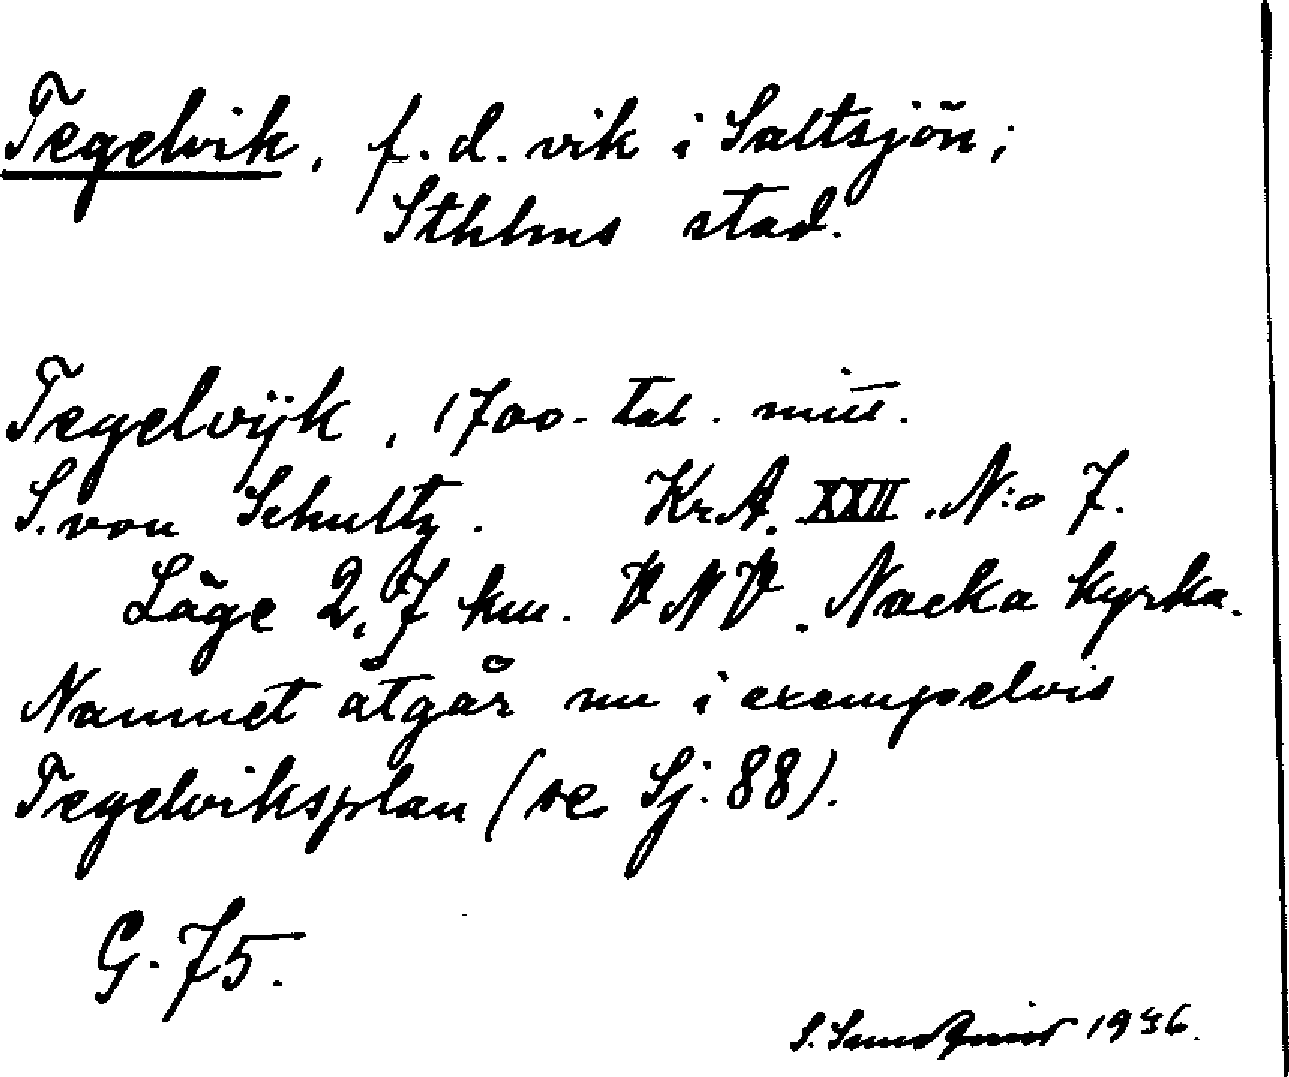 Tegelvik, f.d. vik i Saltsjön;
Sthlms stad.
Tegelvijk, 1700-tal. mitt.
S. von Schultz. Kr.A. XXII. N:o 7.
Läge 2,7 km. VNV. Nacka kyrka.
Namnet åtgår nu i exempelvis
Tegelviksplan (se Sj: 88).
G. 75.
S. Sundqvist 1936.